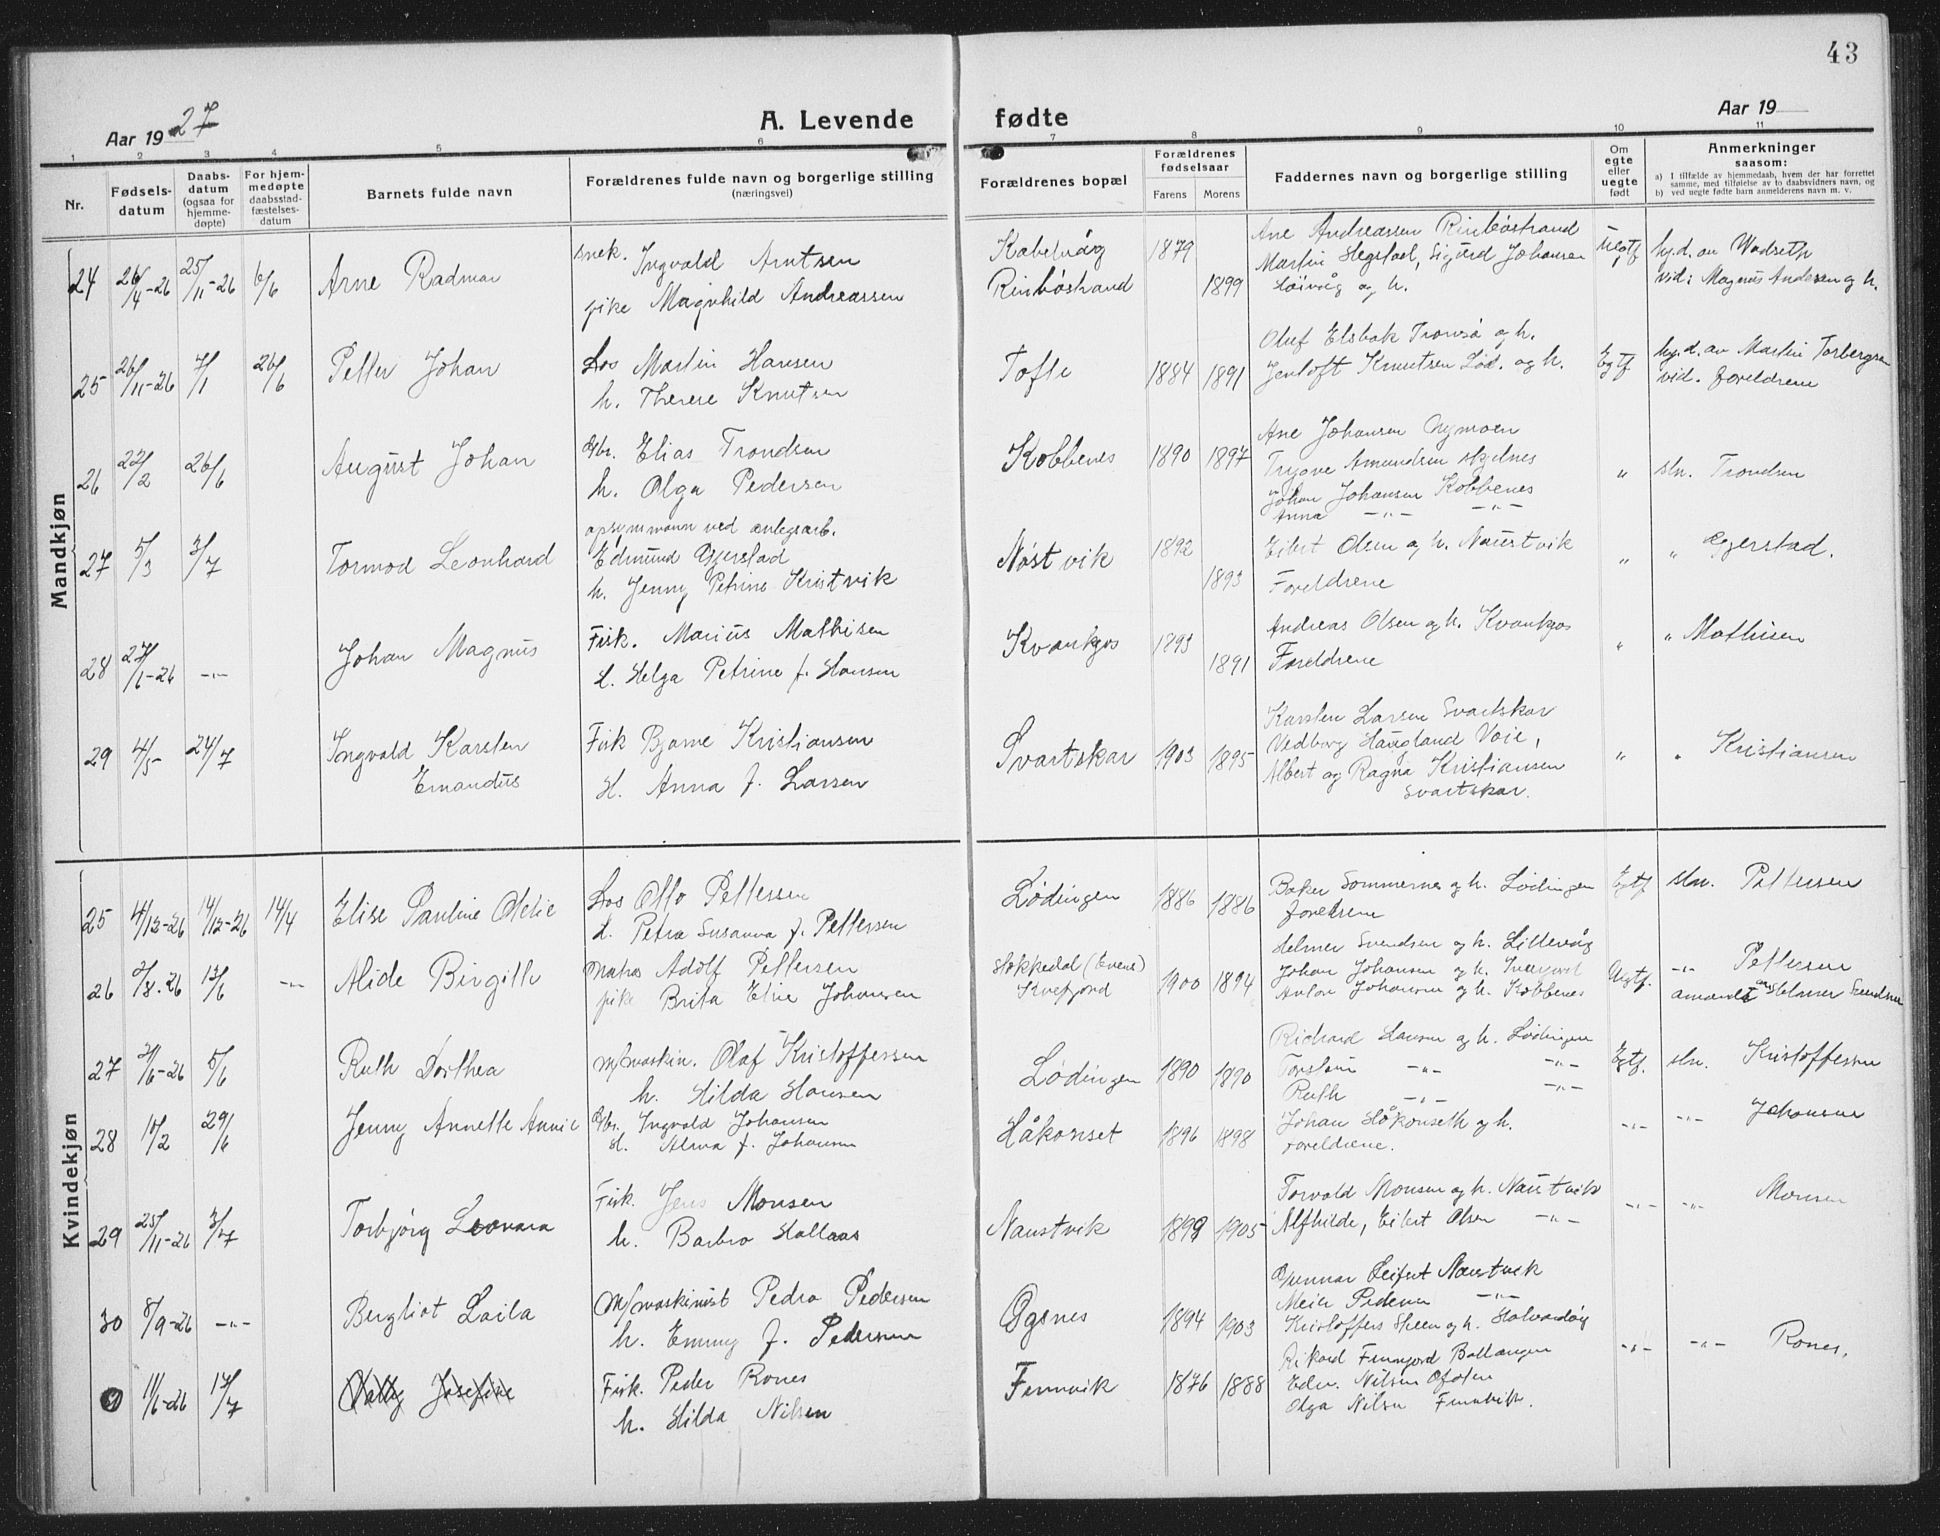 43
Aar 1927
A. Levende fødte
Aar 19
1 2 3 4 5 6 7 8 9 10 11
Nr.
Fødselsdatum
Daabsdatum (ogsaa for hjemmedøpte)
For hjemmedøpte daabsstadfæstelsesdatum
Barnets fulde navn
Forældrenes fulde navn og borgerlige stilling
(næringsvei)
Forældrenes bopæl
Forældrenes fødselsaar
Farens Morens
Faddernes navn og borgerlige stilling
Om egte eller uegte født
Anmerkninger
saasom:
a) I tilfælde av hjemmedaab, hvem der har forrettet
samme, med tilføielse av to daabsvidners navn, og
b) ved uegte fødte barn anmelderens navn m. v.
Mandkjøn
24 26/4-26 25/11-26 6/6 Arne Radmar
snek. Ingvald Arntsen
pike Magnhild Andreassen
Kabelvåg 1879
Rinbøstrand 1899
Ane Andreassen Rinbøstrand
Martin Hegstad, Sigurd Johansen
og h.
Uegtf
hj.d. av Wadseth
vid: Magnus Andersen og h.
25 26/11-26 7/1 26/6 Petter Johan
Los Martin Hansen
h. Therese Knutsen
Tofte 1884 1891
Oluf Elsbak Tromsø og h.
Jentoft Knutsen Lød. og h.
Egtf
hj.d. av Martin
vid. foreldrene
26 22/2 26/6 August Johan
Gbr. Elias Trondsen
h. Olga Pedersen
Kobbenes 1890 1897
Ane Johansen Nymoen
Trygve Amundsen
Johan Johansen Kobbenes
Anna -"- -"-
" sln. Trondsen
27 5/3 3/7 Tormod Leonhard
opsynsmann ved anlegsarb.
Edmund Ægerstad
h. Jenny Petrine Kristvik
Nøstvik 1892
1893
Eibert Olsen og h. Naustvik
Foreldrene
" " Ægerstad.
28 27/1-26 -"- Johan Magnus
Fisk. Marius Mathisen
H. Helga Petrine f. Hansen
Kvankjos 1893
1891
Andreas Olsen og h. Kvankjos
Foreldrene
" " Mathisen
29 4/5- 24/7 Ingvald Karsten
Emandus
Fisk Bjarne Kristiansen
H. Anna f. Larsen
Svartskar 1903 1895
Karsten Larsen Svartskar
Vedborg Haugland Voie,
Albert og Ragna Kristiansen
Svartskar.
" " Kristiansen
Kvindekjøn
25 4/12-26 14/12-26 14/4 Elise Pauline Otelie
Los Otto Pettersen
H. Petra Susanna f. Pettersen
Lødingen 1886 1886
Baker Sommernes og h. Lødingen
foreldrene
Egtf sln. Pettersen
26 3/8-26 12/6 -"- Alide Birgith
Matros Adolf Pettersen
pike Brita Elise Johansen
(Evenes)
Kvefjord 1900 1894
Helmer Svendsen og h. Littevåg
Johan Johansen og h.
Anton Johansen og h. Kobbenes
Uegtf. -"- Pettersen
Helmer Svendsen
27 3/6-26 5/6 Ruth Dorthea
m/maskin. Olaf Kristoffersen
h. Hilda Hansen
Lødingen 1890 1890
Richard Larsen og h. Lødingen
Torstein -"- -"-
Ruth -"- -"-
Egtf. sln. Kristoffersen
28 10/2 29/6 Jenny Annette Annie
Gbr. Ingvald Johansen
H. Alma f. Johansen
Håkonset 1896 1898
Johan Håkonseth og h.
foreldrene.
-"- -"- Johansen
29 25/11-26 3/7 Torbjørg Leonara
Fisk. Jens Monsen
h. Barbro Hallaas
Naustvik 1899 1905
Torvald Monsen og h. Naustvik
Alfhilde, Eibert Olsen -"-
-"- -"- Monsen
30 8/9-26 -"- Bergliot Laila
m/maskinist Pedro Pedersen
h. Emmy f. Pedersen
Øgsnes 1894 1903
Gunnar Leifert Naustvik
Meier Pedersen -"-
Kristoffers Steen og h.
11/6-26 17/7 Valby Josefine
Fisk. Peder Rones
h. Hilda Nilsen
Finnvik 1876 1888
Rikard Finnjord Ballangen
Edv. Nilsen Ofoten
Olga Nilsen Finnvik.
-"- -"- Rones.